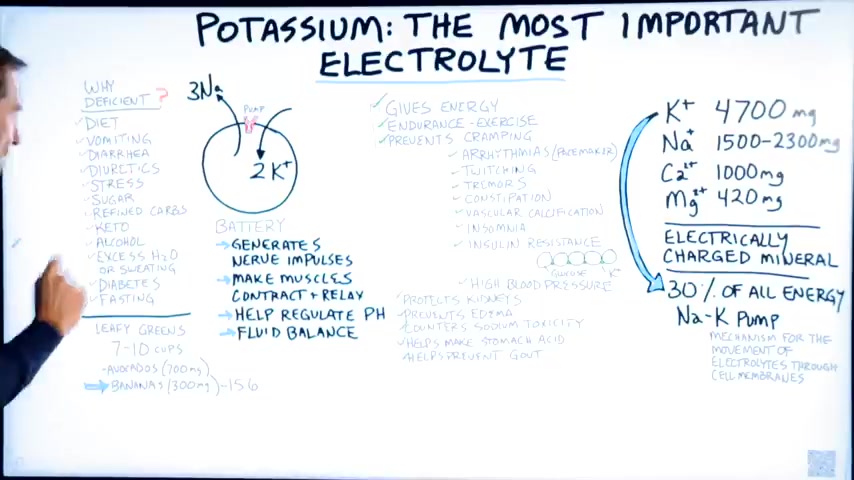 POTASSIUM: THE MOST IMPORTANT
ELECTROLYTE
WHY
DEFICIENT?
DIET
VOMITING
DIARRHEA
DIURETICS
STRESS
SUGAR
REFINED CARBS
KETO
ALCOHOL
EXCESS H2O
OR SWEATING
DIABETES
FASTING
LEAFY GREENS
7-10 CUPS
-AVOCADOS (700mg)
BANANAS (300mg)-15G
3Na
PUMP
2K+
BATTERY
GENERATES
NERVE IMPULSES
MAKE MUSCLES
CONTRACT + RELAX
HELP REGULATE PH
FLUID BALANCE
GIVES ENERGY
ENDURANCE-EXERCISE
PREVENTS CRAMPING
ARRHYTHMIAS (PACEMAKER)
TWITCHING
TREMORS
CONSTIPATION
VASCULAR CALCIFICATION
INSOMNIA
INSULIN RESISTANCE
GLUCOSE K+
HIGH BLOOD PRESSURE
PROTECTS KIDNEYS
PREVENTS EDEMA
COUNTERS SODIUM TOXICITY
HELPS MAKE STOMACH ACID
HELPS PREVENT GOUT
K+ 4700 mg
Na+ 1500-2300mg
Ca2+ 1000mg
Mg2+ 420mg
ELECTRICALLY
CHARGED MINERAL
30% OF ALL ENERGY
Na-K PUMP
MECHANISM FOR THE
MOVEMENT OF
ELECTROLYTES THROUGH
CELL MEMBRANES